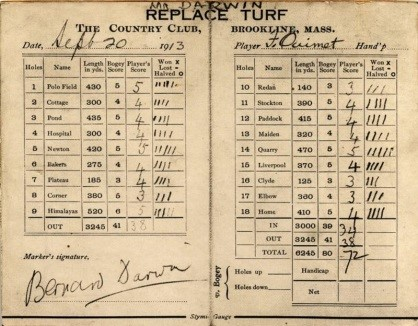 Mr DARWIN
REPLACE TURF
THE COUNTRY CLUB, BROOKLINE, MASS.
Date, Sept 20 1913 Player F. Ouimet Hand'p
Holes Name Length in yds. Bogey Score Player's Score Won X Lost - Halved O
1 Polo Field 430 5 5 |||||
2 Cottage 300 4 4 ||||
3 Pond 435 5 4 ||||
4 Hospital 300 4 4 ||||
5 Newton 420 5 5 |||||
6 Bakers 275 4 4 ||||
7 Plateau 185 3 4 ||||
8 Corner 380 5 3 |||
9 Himalayas 520 6 5 |||||
OUT 3245 41 38
Marker's signature,
Bernard Darwin
Holes Name Length in yds. Bogey Score Player's Score Won X Lost - Halved O
10 Redan 140 3 3 |||
11 Stockton 390 5 4 ||||
12 Paddock 415 5 4 ||||
13 Maiden 320 4 4 ||||
14 Quarry 470 5 5 |||||
15 Liverpool 370 5 4 ||||
16 Clyde 125 3 3 |||
17 Elbow 360 4 3 |||
18 Home 410 5 4 ||||
IN 3000 39 34
OUT 3245 41 38
TOTAL 6245 80 72
v. Bogey
Holes up Handicap
Holes down Net
Stymie Gauge